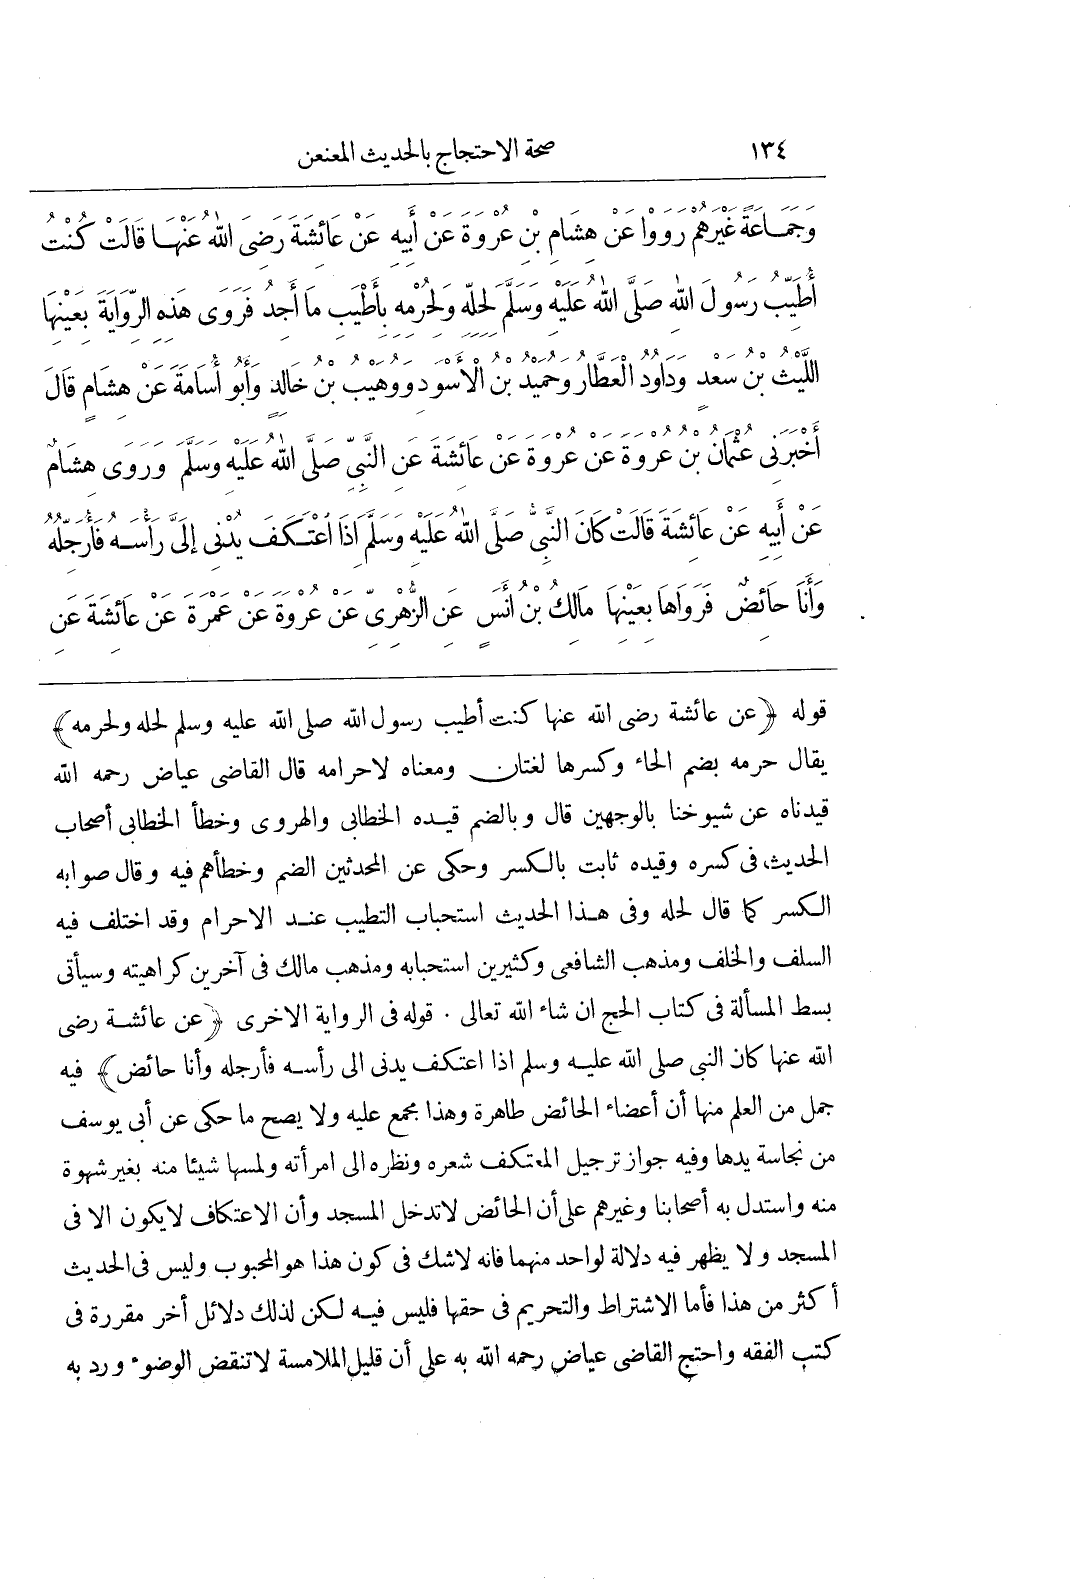 ١٣٤ صحة الاحتجاج بالحديث المعنعن
وَجَمَاعَةً غَيْرَهُمْ رَوَوْا عَنْ هِشَامِ بْنِ عُرْوَةَ عَنْ أَبِيهِ عَنْ عَائِشَةَ رَضِىَ اللهُ عَنْهَا قَالَتْ كُنْتُ
أُطَيِّبُ رَسُولَ اللهِ صَلَّى اللهُ عَلَيْهِ وَسَلَّمَ لِحِلِّهِ وَلِحُرْمِهِ بِأَطْيَبِ مَا أَجِدُ فَرَوَى هَذِهِ الرِّوَايَةَ بِعَيْنِهَا
اللَّيْثُ بْنُ سَعْدٍ وَدَاوُدُ الْعَطَّارُ وَحُمَيْدُ بْنُ الْأَسْوَدِ وَوُهَيْبُ بْنُ خَالِدٍ وَأَبُو أُسَامَةَ عَنْ هِشَامٍ قَالَ
أَخْبَرَنِى عُثْمَانُ بْنُ عُرْوَةَ عَنْ عُرْوَةَ عَنْ عَائِشَةَ عَنِ النَّبِىِّ صَلَّى اللهُ عَلَيْهِ وَسَلَّمَ وَرَوَى هِشَامٌ
عَنْ أَبِيهِ عَنْ عَائِشَةَ قَالَتْ كَانَ النَّبِىُّ صَلَّى اللهُ عَلَيْهِ وَسَلَّمَ إِذَا اعْتَكَفَ يُدْنِى إِلَىَّ رَأْسَهُ فَأُرَجِّلُهُ
وَأَنَا حَائِضٌ فَرَوَاهَا بِعَيْنِهَا مَالِكُ بْنُ أَنَسٍ عَنِ الزُّهْرِىِّ عَنْ عُرْوَةَ عَنْ عَمْرَةَ عَنْ عَائِشَةَ عَنِ
قوله ﴿عن عائشة رضى الله عنها كنت أطيب رسول الله صلى الله عليه وسلم لحله ولحرمه﴾
يقال حرمه بضم الحاء وكسرها لغتان ومعناه لاحرامه قال القاضى عياض رحمه الله
قيدناه عن شيوخنا بالوجهين قال وبالضم قيده الخطابى والهروى وخطأ الخطابى أصحاب
الحديث فى كسره وقيده ثابت بالكسر وحكى عن المحدثين الضم وخطأهم فيه وقال صوابه
الكسر كما قال لحله وفى هذا الحديث استحباب التطيب عند الاحرام وقد اختلف فيه
السلف والخلف ومذهب الشافعى وكثيرين استحبابه ومذهب مالك فى آخرين كراهيته وسيأتى
بسط المسألة فى كتاب الحج ان شاء الله تعالى . قوله فى الرواية الاخرى ﴿عن عائشة رضى
الله عنها كان النبي صلى الله عليه وسلم اذا اعتكف يدنى الى رأسه فأرجله وأنا حائض﴾ فيه
جمل من العلم منها أن أعضاء الحائض طاهرة وهذا مجمع عليه ولا يصح ما حكى عن أبى يوسف
من نجاسة يدها وفيه جواز ترجيل المعتكف شعره ونظره الى امرأته ولمسها شيئا منه بغير شهوة
منه واستدل به أصحابنا وغيرهم على أن الحائض لاتدخل المسجد وأن الاعتكاف لايكون الا فى
المسجد ولا يظهر فيه دلالة لواحد منهما فانه لاشك فى كون هذا هو المحبوب وليس فى الحديث
أكثر من هذا فأما الاشتراط والتحريم فى حقها فليس فيه لكن لذلك دلائل أخر مقررة فى
كتب الفقه واحتج القاضى عياض رحمه الله به على أن قليل الملامسة لاتنقض الوضوء ورد به